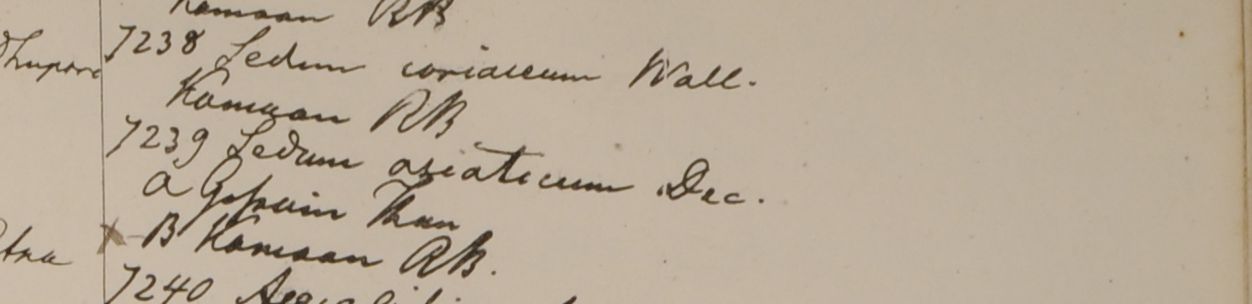 Kamaon RB
7238 Sedum coriaceum Wall.
Kamaon RB
7239 Sedum asiaticum Dec.
a Gossain Than
B Kamaon RB.
7240